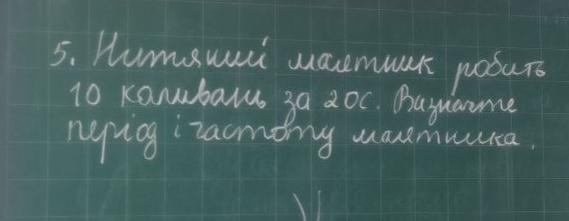 5. Нитяний маятник робить
10 коливань за 20с. Визначте
період і частоту маятника.